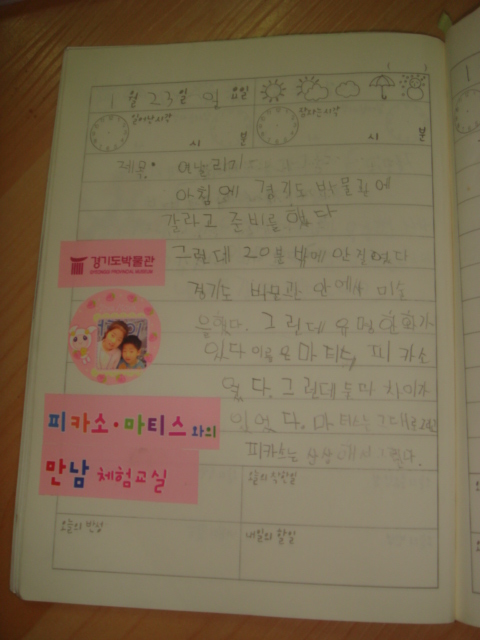 1월 23일 일 요일
일어난시간
시 분
잠자는시간
시 분
제목
아침에 경기도 박물관에
갈라고 준비를 했다
그런대 20분 밖에 안걸렸다
경기도 박물관 안에서 미술
을 했다. 그런데 유명한 화가
있다 이름은 마티스, 피카소
였다. 그런대 둘이 차이가
있었다. 마티스는 그대로
피카소는 상상해서 그렸다.
경기도박물관
GYEONGGI PROVINCIAL MUSEUM
피카소·마티스와의
만남 체험교실
오늘의 착한일
오늘의 반성
내일의 할일